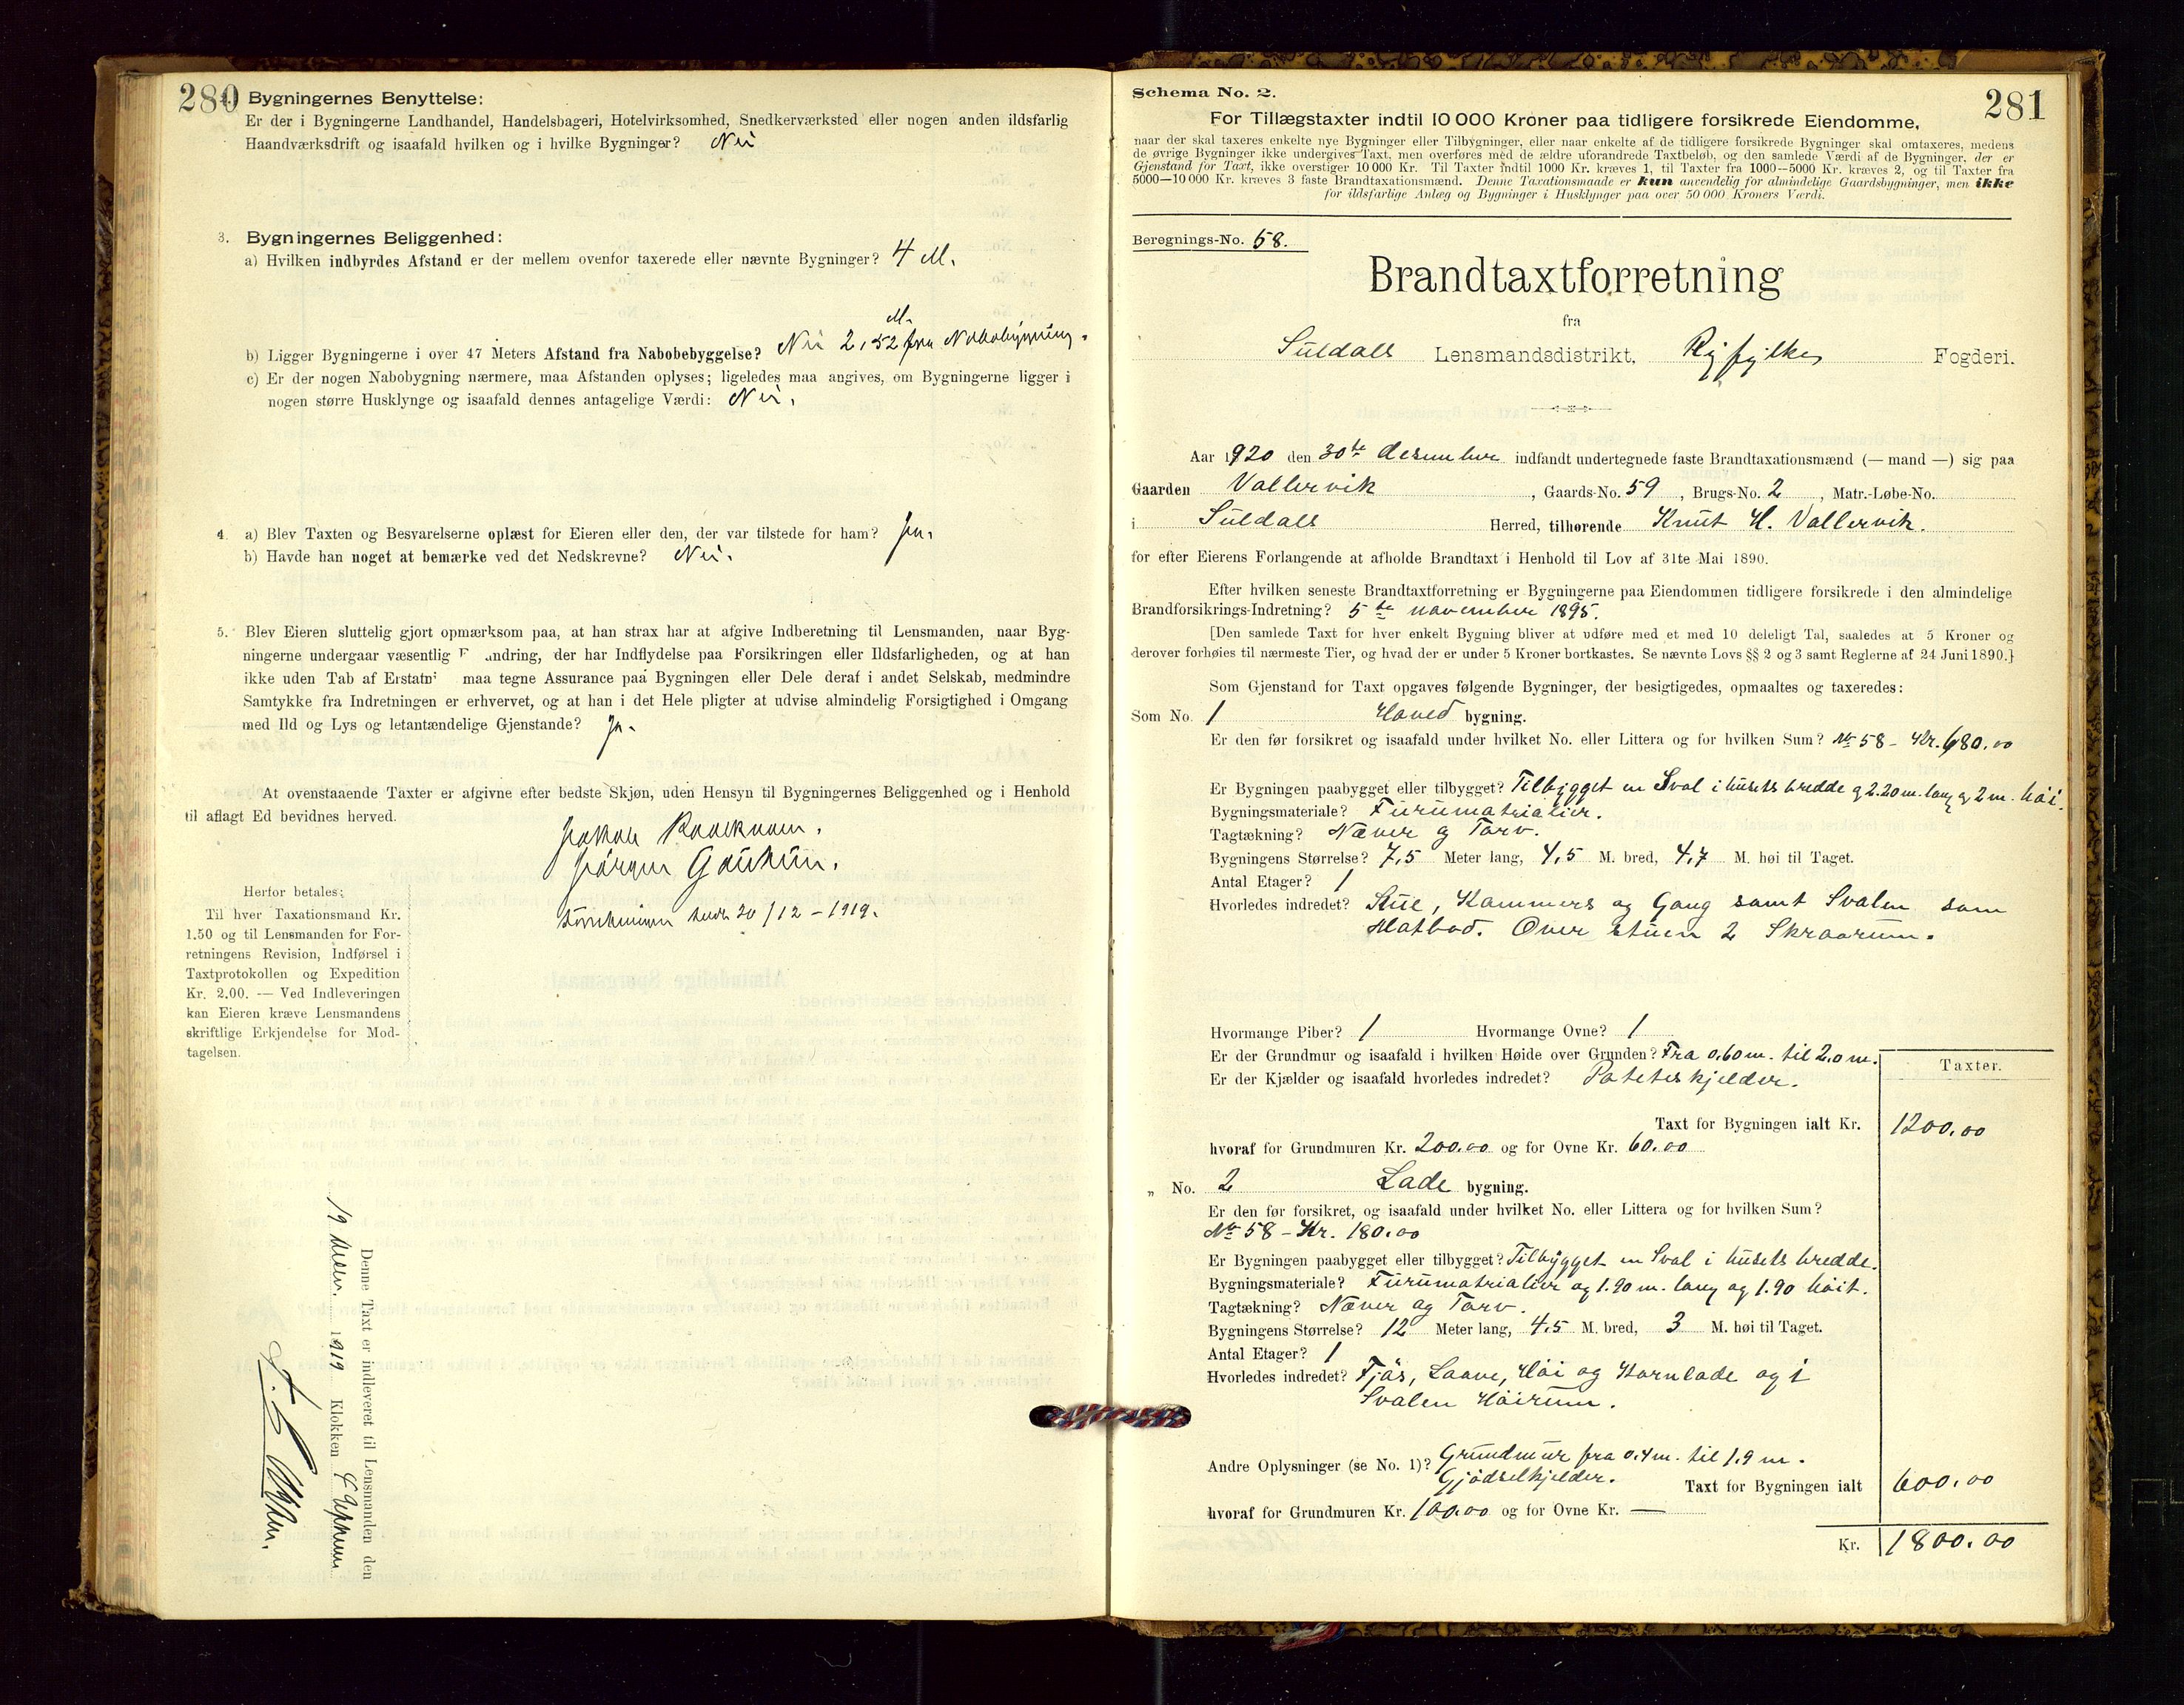 280
Bygningernes Benyttelse:
Er der i Bygningerne Landhandel, Handelsbageri, Hotelvirksomhed, Snedkerværksted eller nogen anden ildsfarlig
Haandværksdrift og isaafald hvilken og i hvilke Bygninger? Nei
3. Bygningernes Beliggenhed:
a) Hvilken indbyrdes Afstand er der mellem ovenfor taxerede eller nævnte Bygninger? 4 M.
b) Ligger Bygningerne i over 47 Meters Afstand fra Nabobebyggelse? Nei 2,52 M. fra Nabobygning.
c) Er der nogen Nabobygning nærmere, maa Afstanden oplyses; ligeledes maa angives, om Bygningerne ligger i
nogen større Husklynge og isaafald dennes antagelige Værdi: Nei.
4. a) Blev Taxten og Besvarelserne oplæst for Eieren eller den, der var tilstede for ham? Ja.
b) Havde han noget at bemærke ved det Nedskrevne? Nei.
5. Blev Eieren sluttelig gjort opmærksom paa, at han strax har at afgive Indberetning til Lensmanden, naar Byg-
ningerne undergaar væsentlig F ndring, der har Indflydelse paa Forsikringen eller Ildsfarligheden, og at han
ikke uden Tab af Erstatn maa tegne Assurance paa Bygningen eller Dele deraf i andet Selskab, medmindre
Samtykke fra Indretningen er erhvervet, og at han i det Hele pligter at udvise almindelig Forsigtighed i Omgang
med Ild og Lys og letantændelige Gjenstande? Ja.
At ovenstaaende Taxter er afgivne efter bedste Skjøn, uden Hensyn til Bygningernes Beliggenhed og i Henhold
til aflagt Ed bevidnes herved.
Jakob
Jørgen
30/12-1919.
Herfor betales:
Til hver Taxationsmand Kr.
1.50 og til Lensmanden for For-
retningens Revision, Indførsel i
Taxtprotokollen og Expedition
Kr. 2.00. — Ved Indleveringen
kan Eieren kræve Lensmandens
skriftlige Erkjendelse for Mod-
tagelsen.
Denne Taxt er indleveret til Lensmanden den
19 1919 Klokken 4
281
Schema No. 2.
For Tillægstaxter indtil 10 000 Kroner paa tidligere forsikrede Eiendomme,
naar der skal taxeres enkelte nye Bygninger eller Tilbygninger, eller naar enkelte af de tidligere forsikrede Bygninger skal omtaxeres, medens
de øvrige Bygninger ikke undergives Taxt, men overføres med de ældre uforandrede Taxtbeløb, og den samlede Værdi af de Bygninger, der er
Gjenstand for Taxt, ikke overstiger 10 000 Kr. Til Taxter indtil 1000 Kr. kræves 1, til Taxter fra 1000—5000 Kr. kræves 2, og til Taxter fra
5000—10 000 Kr. kræves 3 faste Brandtaxationsmænd. Denne Taxationsmaade er kun anvendelig for almindelige Gaardsbygninger, men ikke
for ildsfarlige Anlæg og Bygninger i Husklynger paa over 50 000 Kroners Værdi.
Beregnings-No. 58.
Brandtaxtforretning
fra
Suldals Lensmandsdistrikt, Ryfylkes Fogderi.
Aar 1920 den 30te desember indfandt undertegnede faste Brandtaxationsmænd (— mand —) sig paa
Gaarden Vallervik, Gaards-No. 59, Brugs-No. 2, Matr.-Løbe-No.
i Suldals Herred, tilhørende Knut H. Vallervik.
for efter Eierens Forlangende at afholde Brandtaxt i Henhold til Lov af 31te Mai 1890.
Efter hvilken seneste Brandtaxtforretning er Bygningerne paa Eiendommen tidligere forsikrede i den almindelige
Brandforsikrings-Indretning? 5te november 1895.
[Den samlede Taxt for hver enkelt Bygning bliver at udføre med et med 10 deleligt Tal, saaledes at 5 Kroner og
derover forhøies til nærmeste Tier, og hvad der er under 5 Kroner bortkastes. Se nævnte Lovs §§ 2 og 3 samt Reglerne af 24 Juni 1890.]
Som Gjenstand for Taxt opgaves følgende Bygninger, der besigtigedes, opmaaltes og taxeredes:
Som No. 1 Hoved bygning.
Er den før forsikret og isaafald under hvilket No. eller Littera og for hvilken Sum? No 58 - Kr. 680.00
Er Bygningen paabygget eller tilbygget? Tilbygget en Sval i husets bredde og 2.20 m. lang og 2 m. høi.
Bygningsmateriale? Furumatrialier.
Tagtækning? Næver og Torv.
Bygningens Størrelse? 7,5 Meter lang, 4,5 M. bred, 4,7 M. høi til Taget.
Antal Etager? 1
Hvorledes indredet? Stue, Kammers og Gang samt Svalen som
Matbod. Over stuen 2 Skraarum.
Hvormange Piber? 1 Hvormange Ovne? 1
Er der Grundmur og isaafald i hvilken Høide over Grunden? Fra 0,60 m. til 2,0 m.
Er der Kjælder og isaafald hvorledes indredet? Poteteskjelder.
Taxter.
Taxt for Bygningen ialt Kr. 1200,00
hvoraf for Grundmuren Kr. 200,00 og for Ovne Kr. 60,00
„ No. 2 Lade bygning.
Er den før forsikret, og isaafald under hvilket No. eller Littera og for hvilken Sum?
No 58 - Kr. 180,00
Er Bygningen paabygget eller tilbygget? Tilbygget en Sval i husets bredde.
Bygningsmateriale? Furumatrialier og 1.90 m. lang og 1.90 høit.
Tagtækning? Næver og Torv.
Bygningens Størrelse? 12 Meter lang, 4,5 M. bred, 3 M. høi til Taget.
Antal Etager? 1
Hvorledes indredet? Fjøs, Laave, Høi og Kornlade og i
Svalen Høirum.
Andre Oplysninger (se No. 1)? Grundmur fra 0,4 m. til 1,9 m.
Gjødselkjelder. Taxt for Bygningen ialt 600,00
hvoraf for Grundmuren Kr. 100,00 og for Ovne Kr. —
Kr. 1800,00